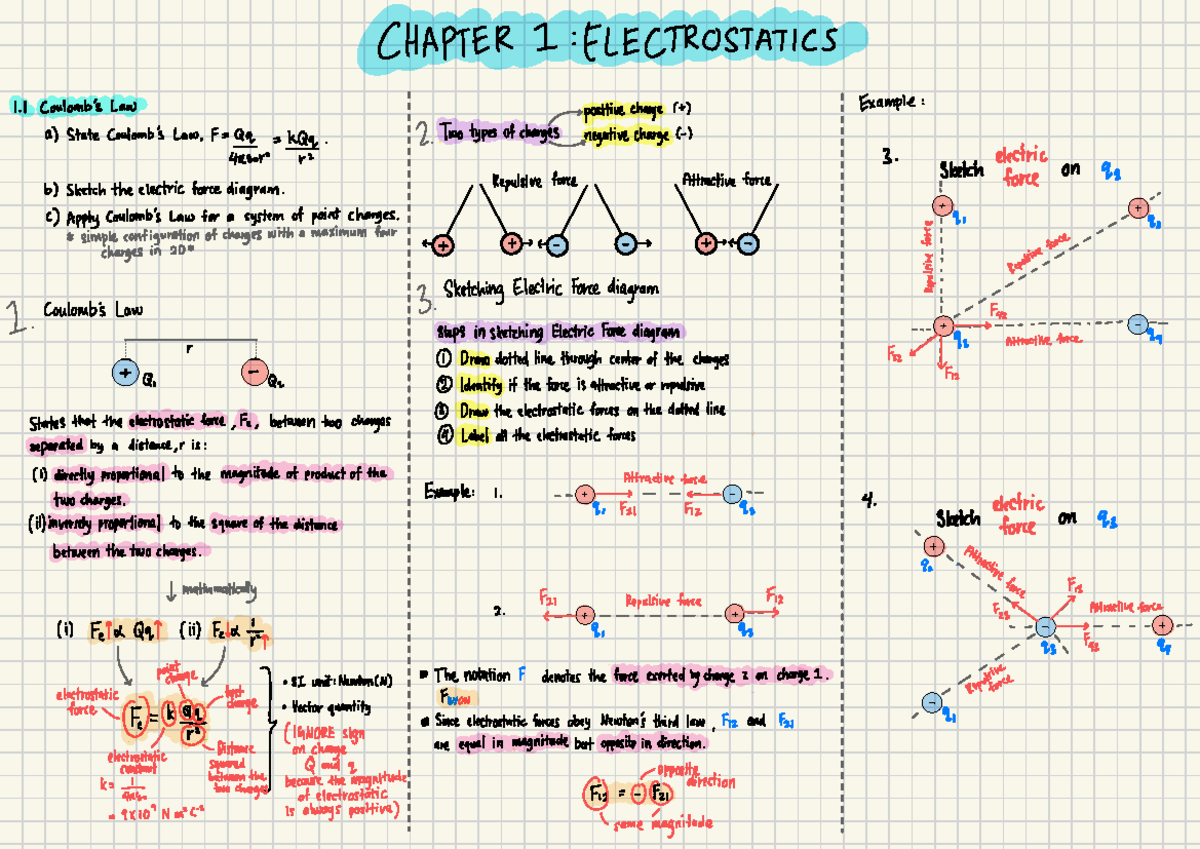 CHAPTER 1 : ELECTROSTATICS
1.1 Coulomb's Law
a) State Coulomb's Law, F = Qq/4πε₀r² = kQq/r².
b) Sketch the electric force diagram.
c) Apply Coulomb's Law for a system of point charges.
* simple configuration of charges with a maximum four
charges in 2D*
1. Coulomb's Law
r
+ Q₁
−
States that the electrostatic force, F, between two charges
separated by a distance, r is:
(i) directly proportional to the magnitude of product of the
two charges.
(ii) inversely proportional to the square of the distance
between the two charges.
↓ mathematically
(i) Fₑ↑ ∝ Qq↑ (ii) Fₑ↓ ∝ 1/r²↑
point
charge
test
charge
electrostatic
force
Fₑ = k Qq/r²
electrostatic
constant
k = 1/4πε₀
= 9×10⁹ N m² C⁻²
Distance
squared
between the
two charges
• SI unit: Newton (N)
• Vector quantity
(IGNORE sign
on charge
Q and q
because the magnitude
of electrostatic
is always positive)
2. Two types of charges
positive charge (+)
negative charge (−)
Repulsive force
Attractive force
+ + − − + −
3. Sketching Electric Force diagram
steps in sketching Electric Force diagram
① Draw dotted line through center of the charges
② Identify if the force is attractive or repulsive
③ Draw the electrostatic forces on the dotted line
④ Label all the electrostatic forces
Example: 1.
Attractive force
+ −
q₁ F₂₁ F₁₂
2.
F₂₁ Repulsive force F₁₂
+ +
q₁
The notation F denotes the force exerted by charge 2 on charge 1.
Since electrostatic forces obey Newton's third law, F₁₂ and F₂₁
are equal in magnitude but opposite in direction.
opposite
direction
= − F₂₁
same magnitude
Example:
3.
Sketch electric force on
+ q₁
+
Repulsive force
Repulsive force
+
Attractive force
−
F₁₂
4.
Sketch electric force on
+
Attractive force
F₁₃
Attractive force
−
+
Repulsive
force
− q₁